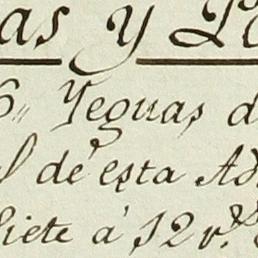 as y P
6,, Yeguas d
l de esta Ad
Siete á $12 r.s